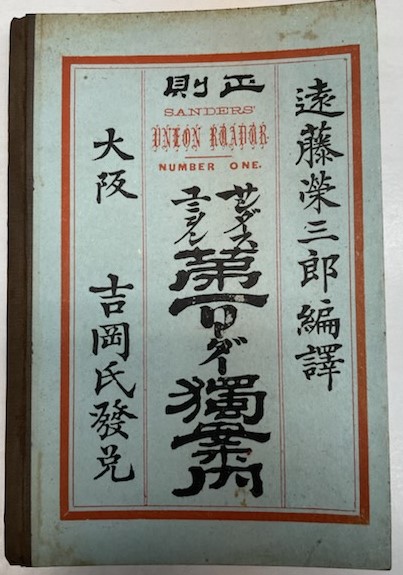 遠藤榮三郎編譯
正則
SANDERS'
UNION READER.
NUMBER ONE.
サンダース
ユニオン
第一リーダー獨案内
大阪 吉岡氏發兌